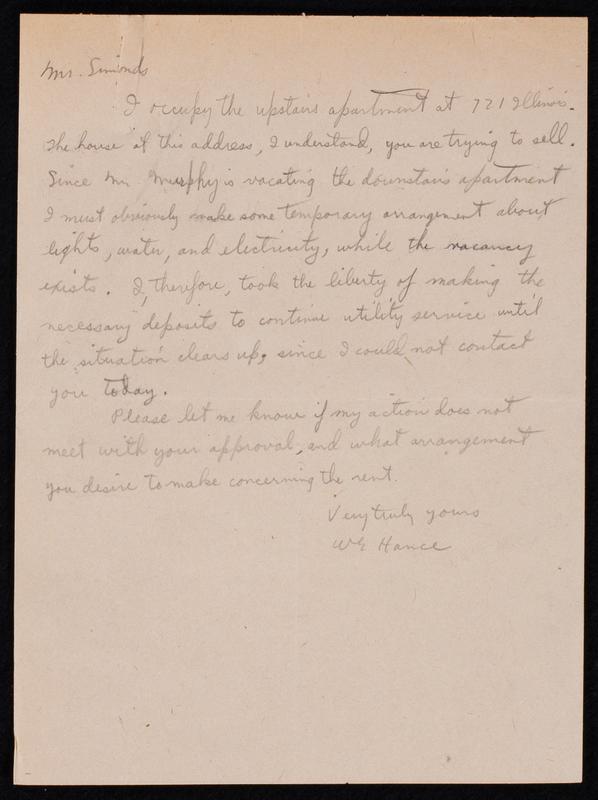 Mr. Simonds
I occupy the upstairs apartment at 721 Illinois.
The house at this address, I understand, you are trying to sell.
Since Mr. Murphy is vacating the downstairs apartment
I must obviously make some temporary arrangement about
lights, water, and electricity, while the vacancy
exists. I, therefore, took the liberty of making the
necessary deposits to continue utility service until
the situation clears up, since I could not contact
you today.
Please let me know if my action does not
meet with your approval, and what arrangement
you desire to make concerning the rent.
Very truly yours
WE Hance